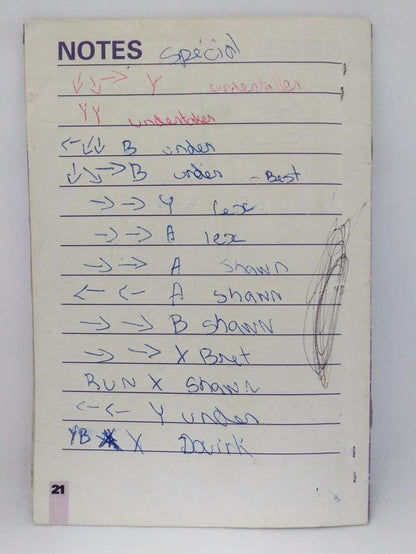 NOTES special
↓ ↘ → Y undertaker
YY undertaker
← ↙ ↓ B under
↓ ↘ → B under - Best
→ → Y lex
→ → A lex
→ → A Shawn
← ← A Shawn
→ → B Shawn
→ → X Bret
RUN X Shawn
← ← Y under
YB X Doink
21